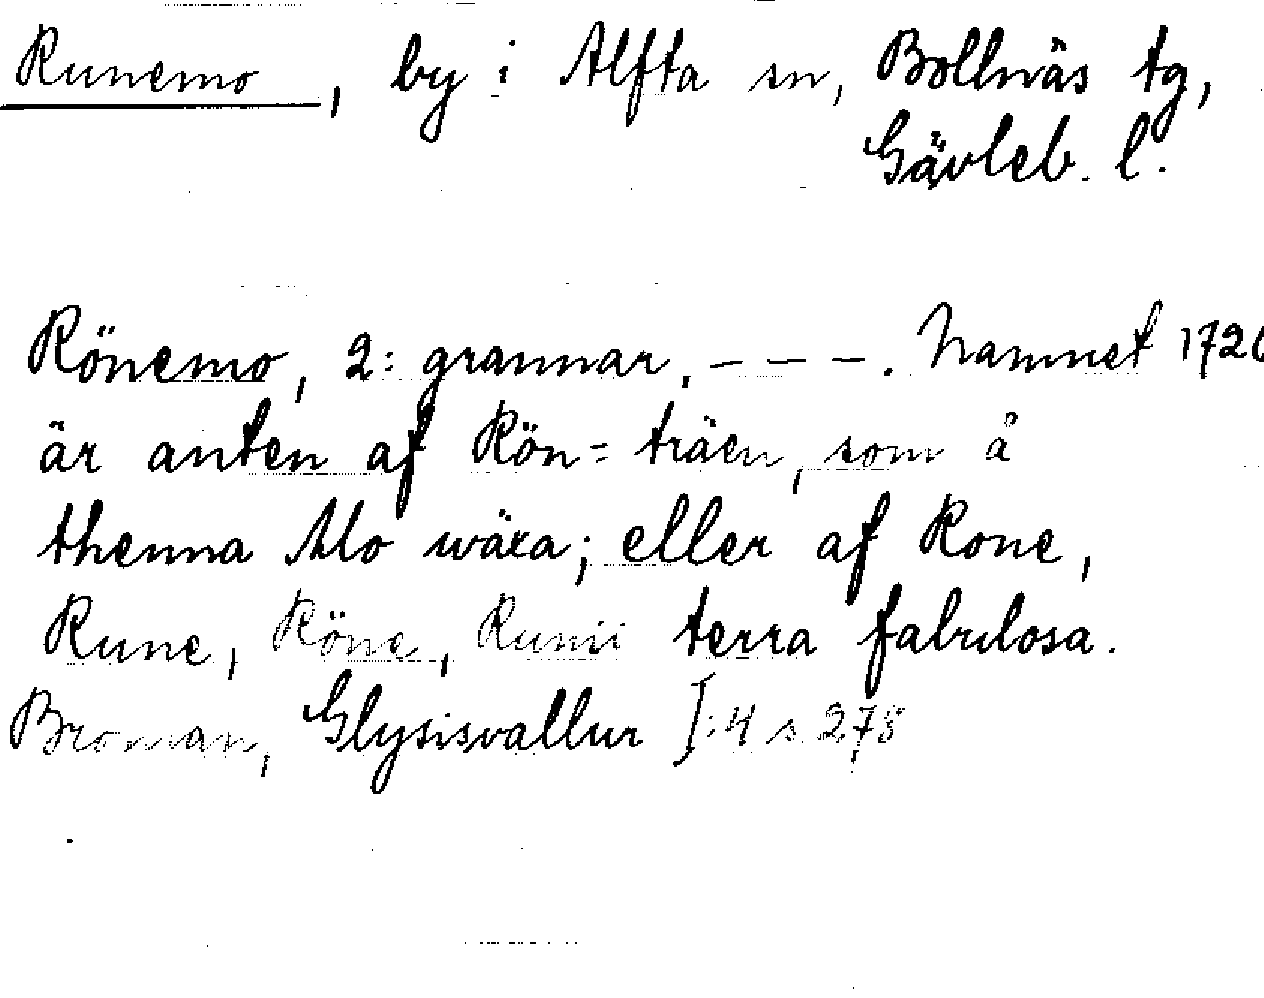 Runemo, by i Alfta sn, Bollnäs tg,
Gävleb. l.
Rönemo, 2: grannar, – – –. Namnet 1720
är anten af Rön= träen, som å
thenna Mo wäxa; eller af Rone,
Rune, Röne, Runii terra fabulosa.
Broman, Glysisvallur I:4 s 278